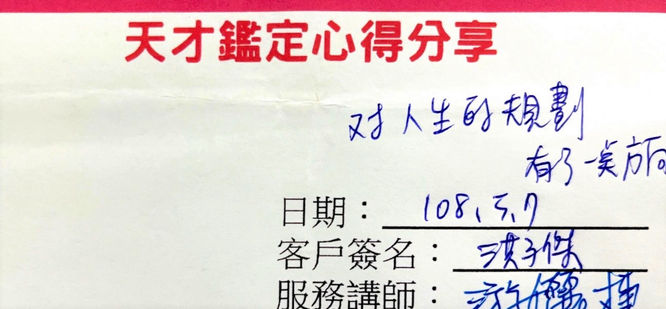 天才鑑定心得分享
对人生的規劃
有了一些方向
日期：108.5.7
客戶簽名：洪子傑
服務講師：